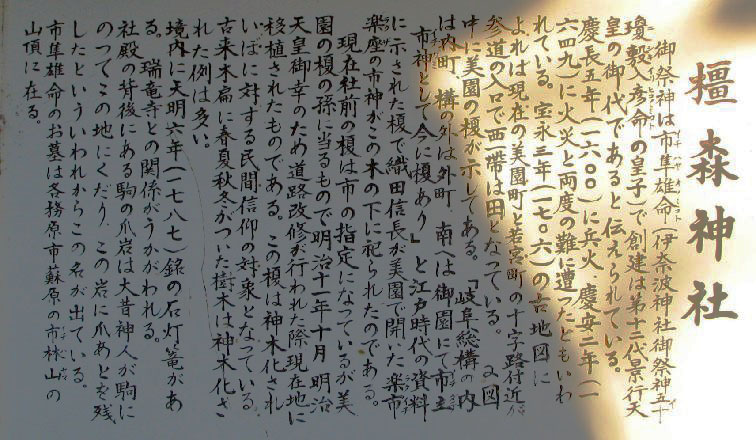 橿森神社
御祭神は市隼雄命(伊奈波神社御祭神五十
瓊敷入彦命の皇子)で創建は第十二代景行天
皇の御代であると伝えられている。
慶長五年(一六〇〇)に兵火 慶安二年(一
六四九)に火災と両度の難に遭ったともいわ
れている。宝永三年(一七〇六)の古地図に
よれば現在の美園町と若宮町の十字路付近が
参道の入口で西一帯は田となっている。又図
中に美園の榎が示してある。「岐阜総構の内
は内町 構の外は外町 南へは御園にて市立
市神として今に榎あり」と江戸時代の資料
に示された榎で織田信長が美園で開いた楽市
楽座の市神がこの木の下に祀られたのである。
現在社前の榎は市の指定になっているが美
園の榎の孫に当るもので明治十一年十月 明治
天皇御幸のため道路改修が行われた際現在地に
移植されたものである。この榎は神木化され
いぼに対する民間信仰の対象となっている。
古来木扁に春夏秋冬がついた樹木は神木化さ
れた例は多い。
境内に天明六年(一七八七)銘の石灯篭があ
る。瑞竜寺との関係がうかがわれる。
社殿の背後にある駒の爪岩は大昔神人が駒に
のってこの地にくだり、この岩に爪あとを残
したといういわれからこの名が出ている。
市隼雄命のお墓は各務原市蘇原の市林山の
山頂に在る。